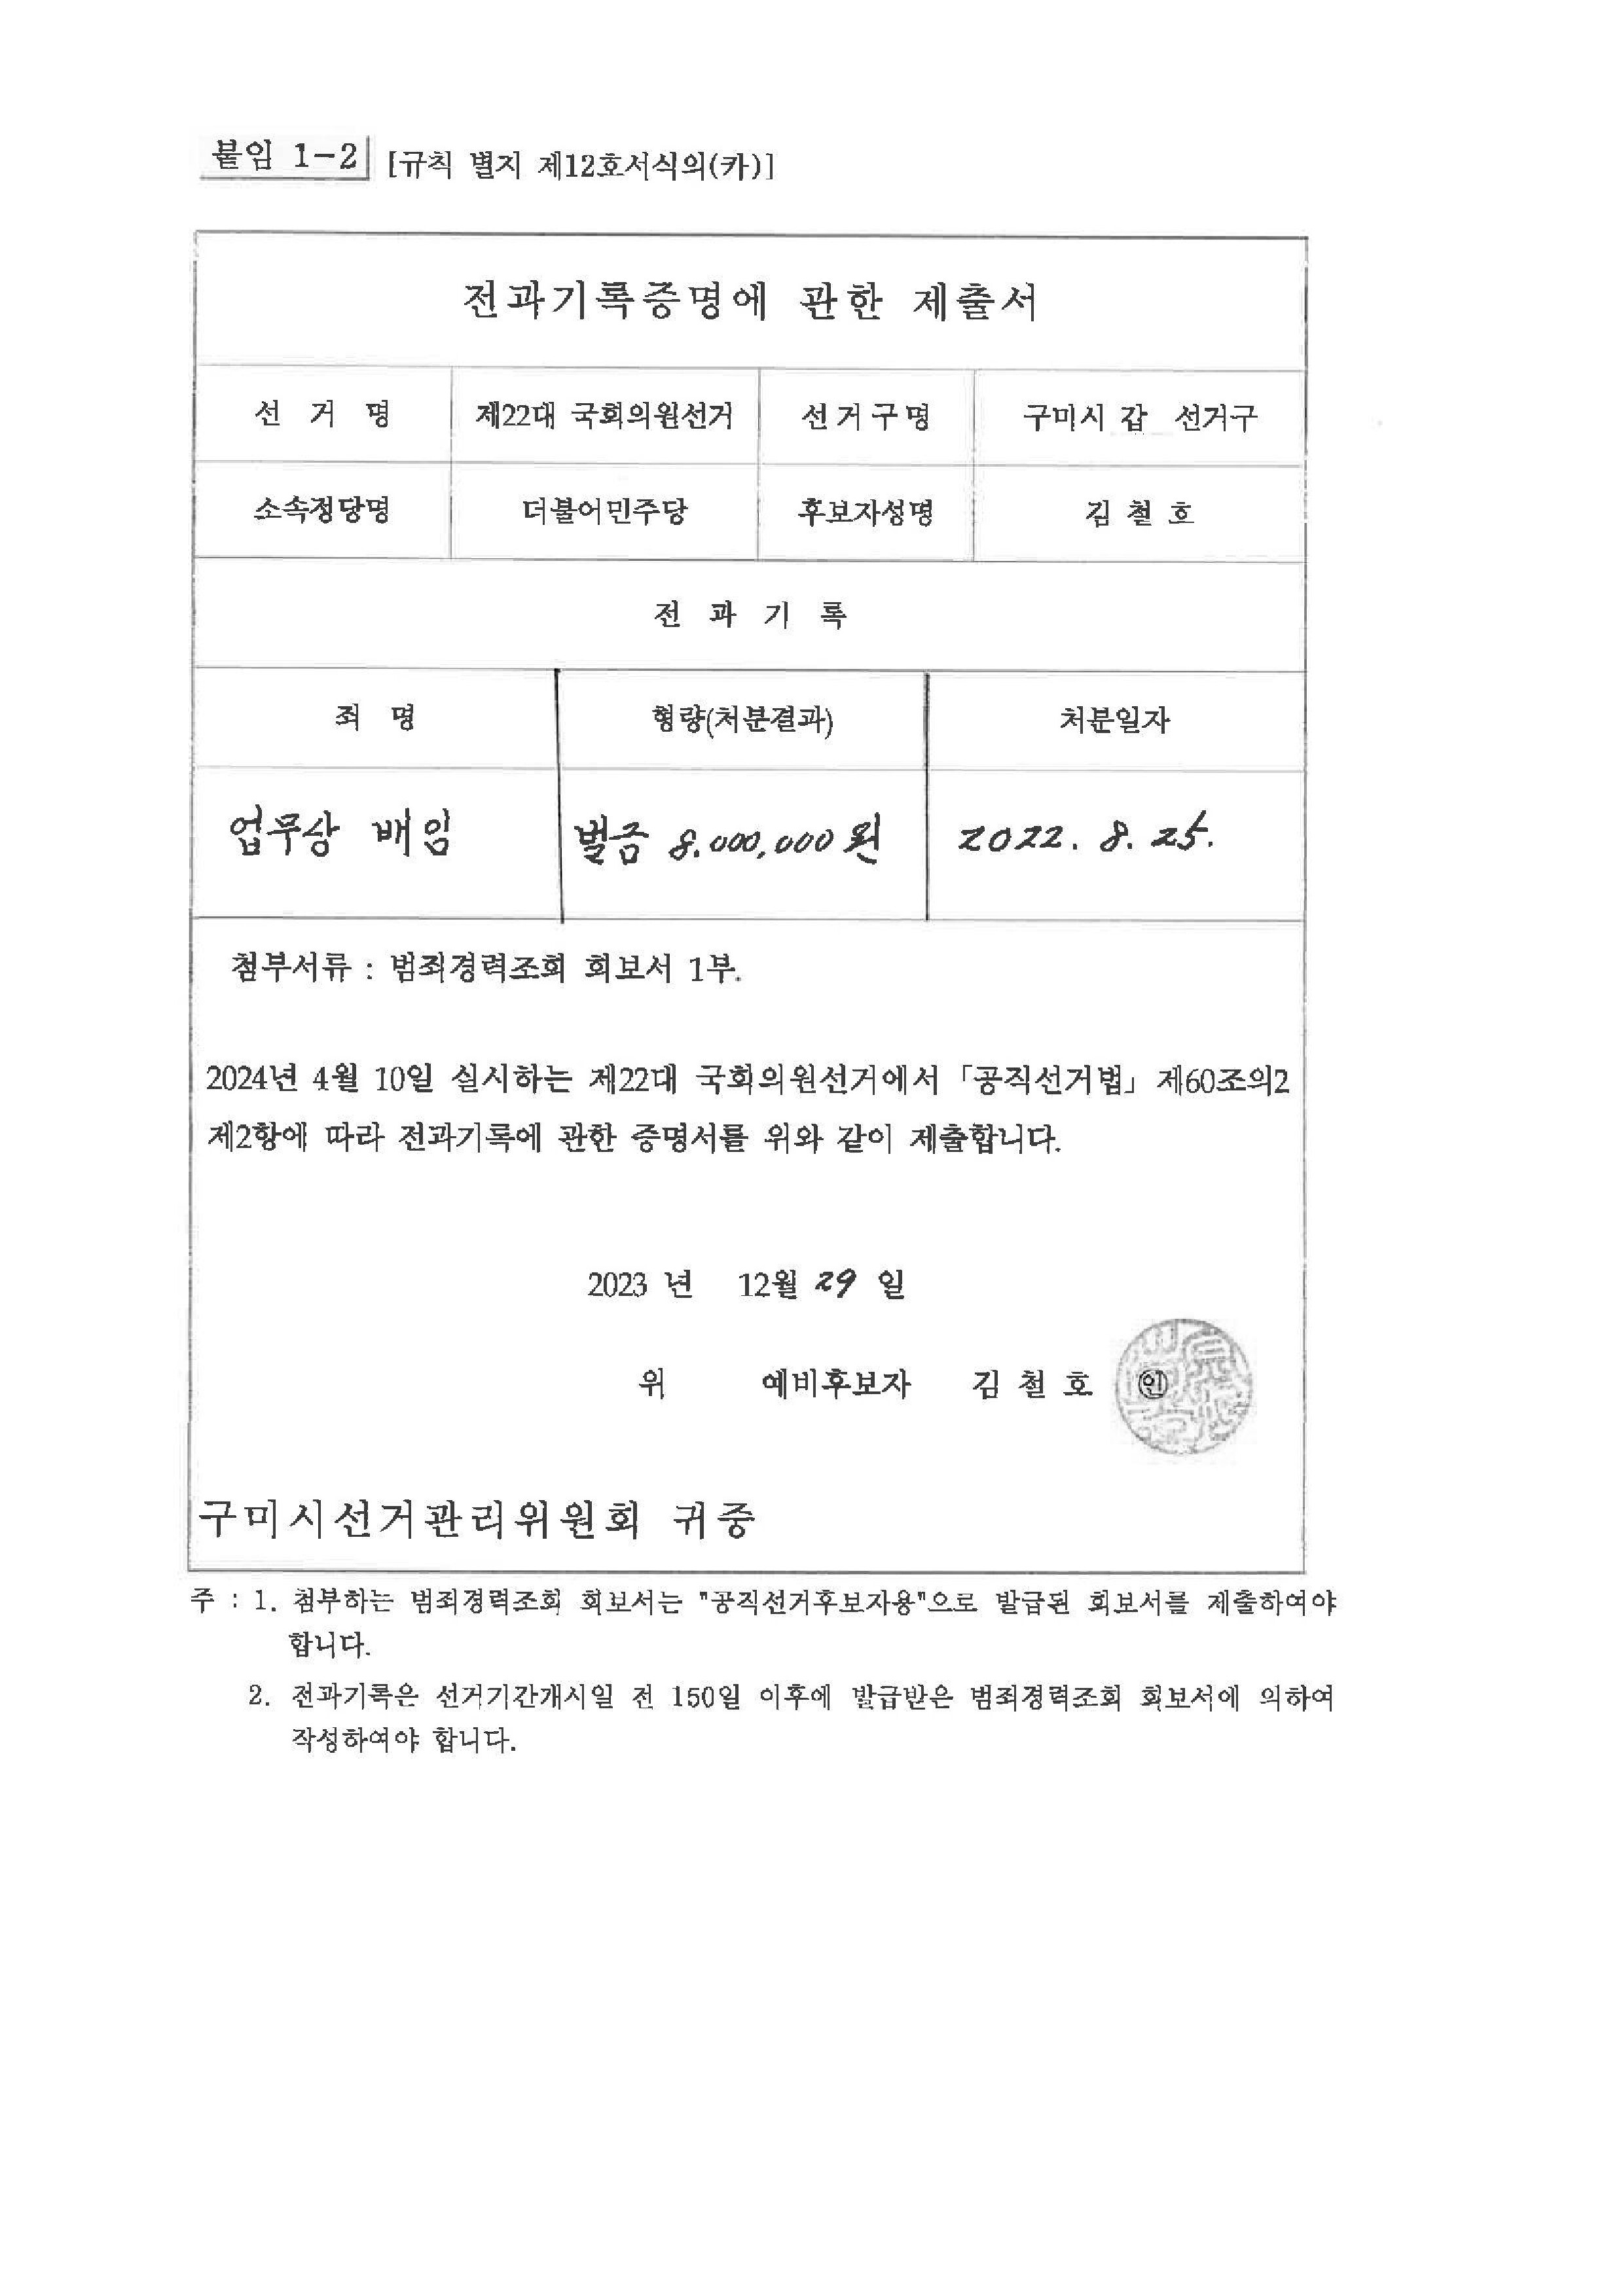 붙임 1-2 [규칙 별지 제12호서식의(카)]
전과기록증명에 관한 제출서
선 거 명 제22대 국회의원선거 선거구명 구미시 갑 선거구
소속정당명 더불어민주당 후보자성명 김 철 호
전 과 기 록
죄 명 형량(처분결과) 처분일자
업무상 배임 벌금 8,000,000원 2022. 8. 25.
첨부서류 : 범죄경력조회 회보서 1부.
2024년 4월 10일 실시하는 제22대 국회의원선거에서 「공직선거법」 제60조의2
제2항에 따라 전과기록에 관한 증명서를 위와 같이 제출합니다.
2023 년 12월 29 일
위 예비후보자 김 철 호 ㊞
구미시선거관리위원회 귀중
주 : 1. 첨부하는 범죄경력조회 회보서는 "공직선거후보자용"으로 발급된 회보서를 제출하여야
합니다.
2. 전과기록은 선거기간개시일 전 150일 이후에 발급받은 범죄경력조회 회보서에 의하여
작성하여야 합니다.